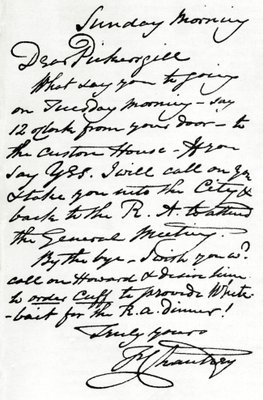 Sunday Morning
Dear Pickersgill
What say you to going
on Tuesday morning - say
12 oClock from your door - to
the Custom House - If you
say YES. I will call on you
& take you into the City, &
back to the R. A. to attend
the General Meeting.
By the bye - I wish you wd.
call on Howard & desire him
to order Cuff to provide White
-bait for the R.a. dinner!
Truly yours
F Chantrey